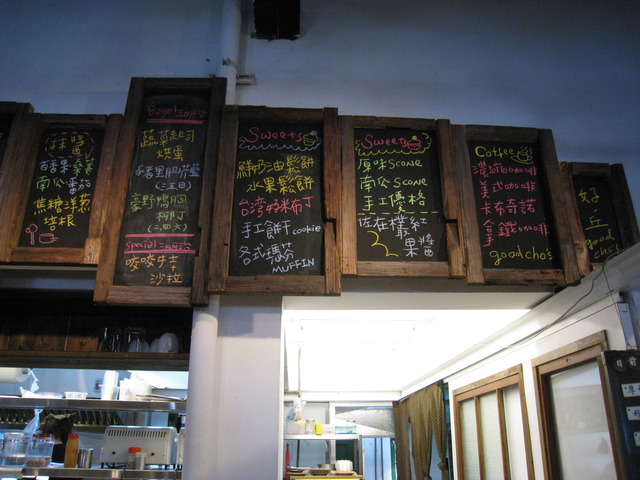 抹醬
百香果 桑葚
南瓜 蕃茄
焦糖洋蔥
培根
Bagel
蔬菜起司
烘蛋
豬里肌
(三五日)
柳丁
(二四六)
Special
沙拉
Sweets
鮮奶油鬆餅
水果鬆餅
台灣奶米布丁
手工餅干 cookie
各式瑪芬
MUFFIN
Sweets
原味Scone
南瓜Scone
手工優格
佐在欉紅
果醬
Coffee
濃縮咖啡
美式咖啡
卡布奇諾
拿鐵咖啡
goodcho's
好
丘
good
cho's